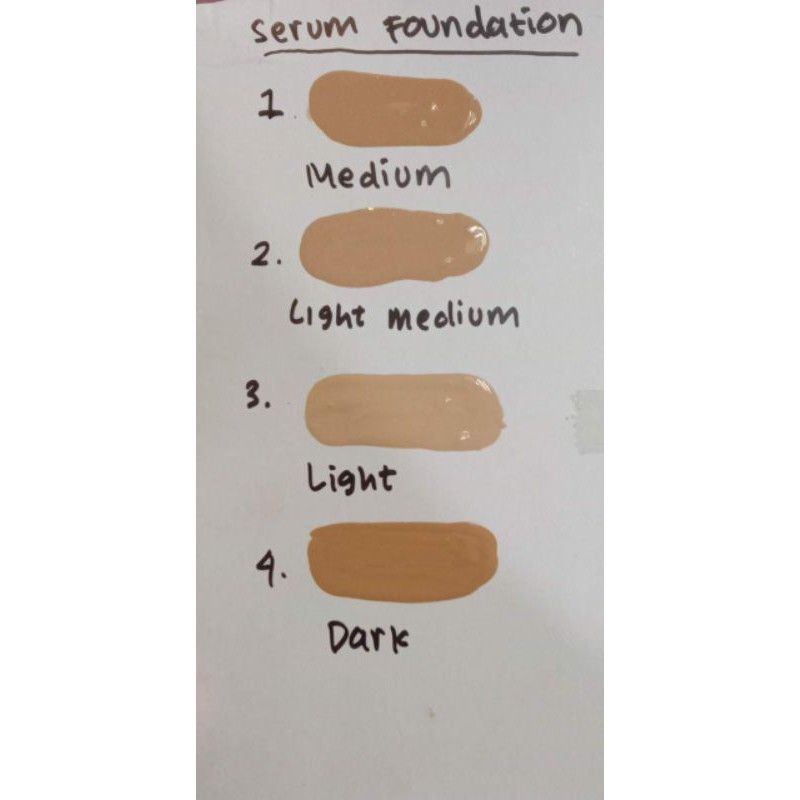 Serum Foundation
1.
Medium
2.
Light medium
3.
Light
4.
Dark